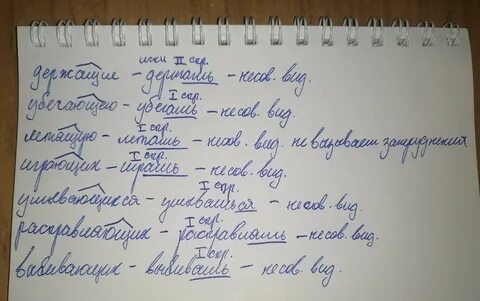 искл II спр.
держащие – держать – несов. вид.
I спр.
убегающую – убегать – несов. вид.
I спр.
летящую – летать – несов. вид. не вызывает затруднений
I спр.
играющих – играть – несов. вид.
I спр.
умывающихся – умываться – несов. вид.
I спр.
расправляющих – расправлять – несов. вид.
I спр.
выбивающих – выбивать – несов. вид.